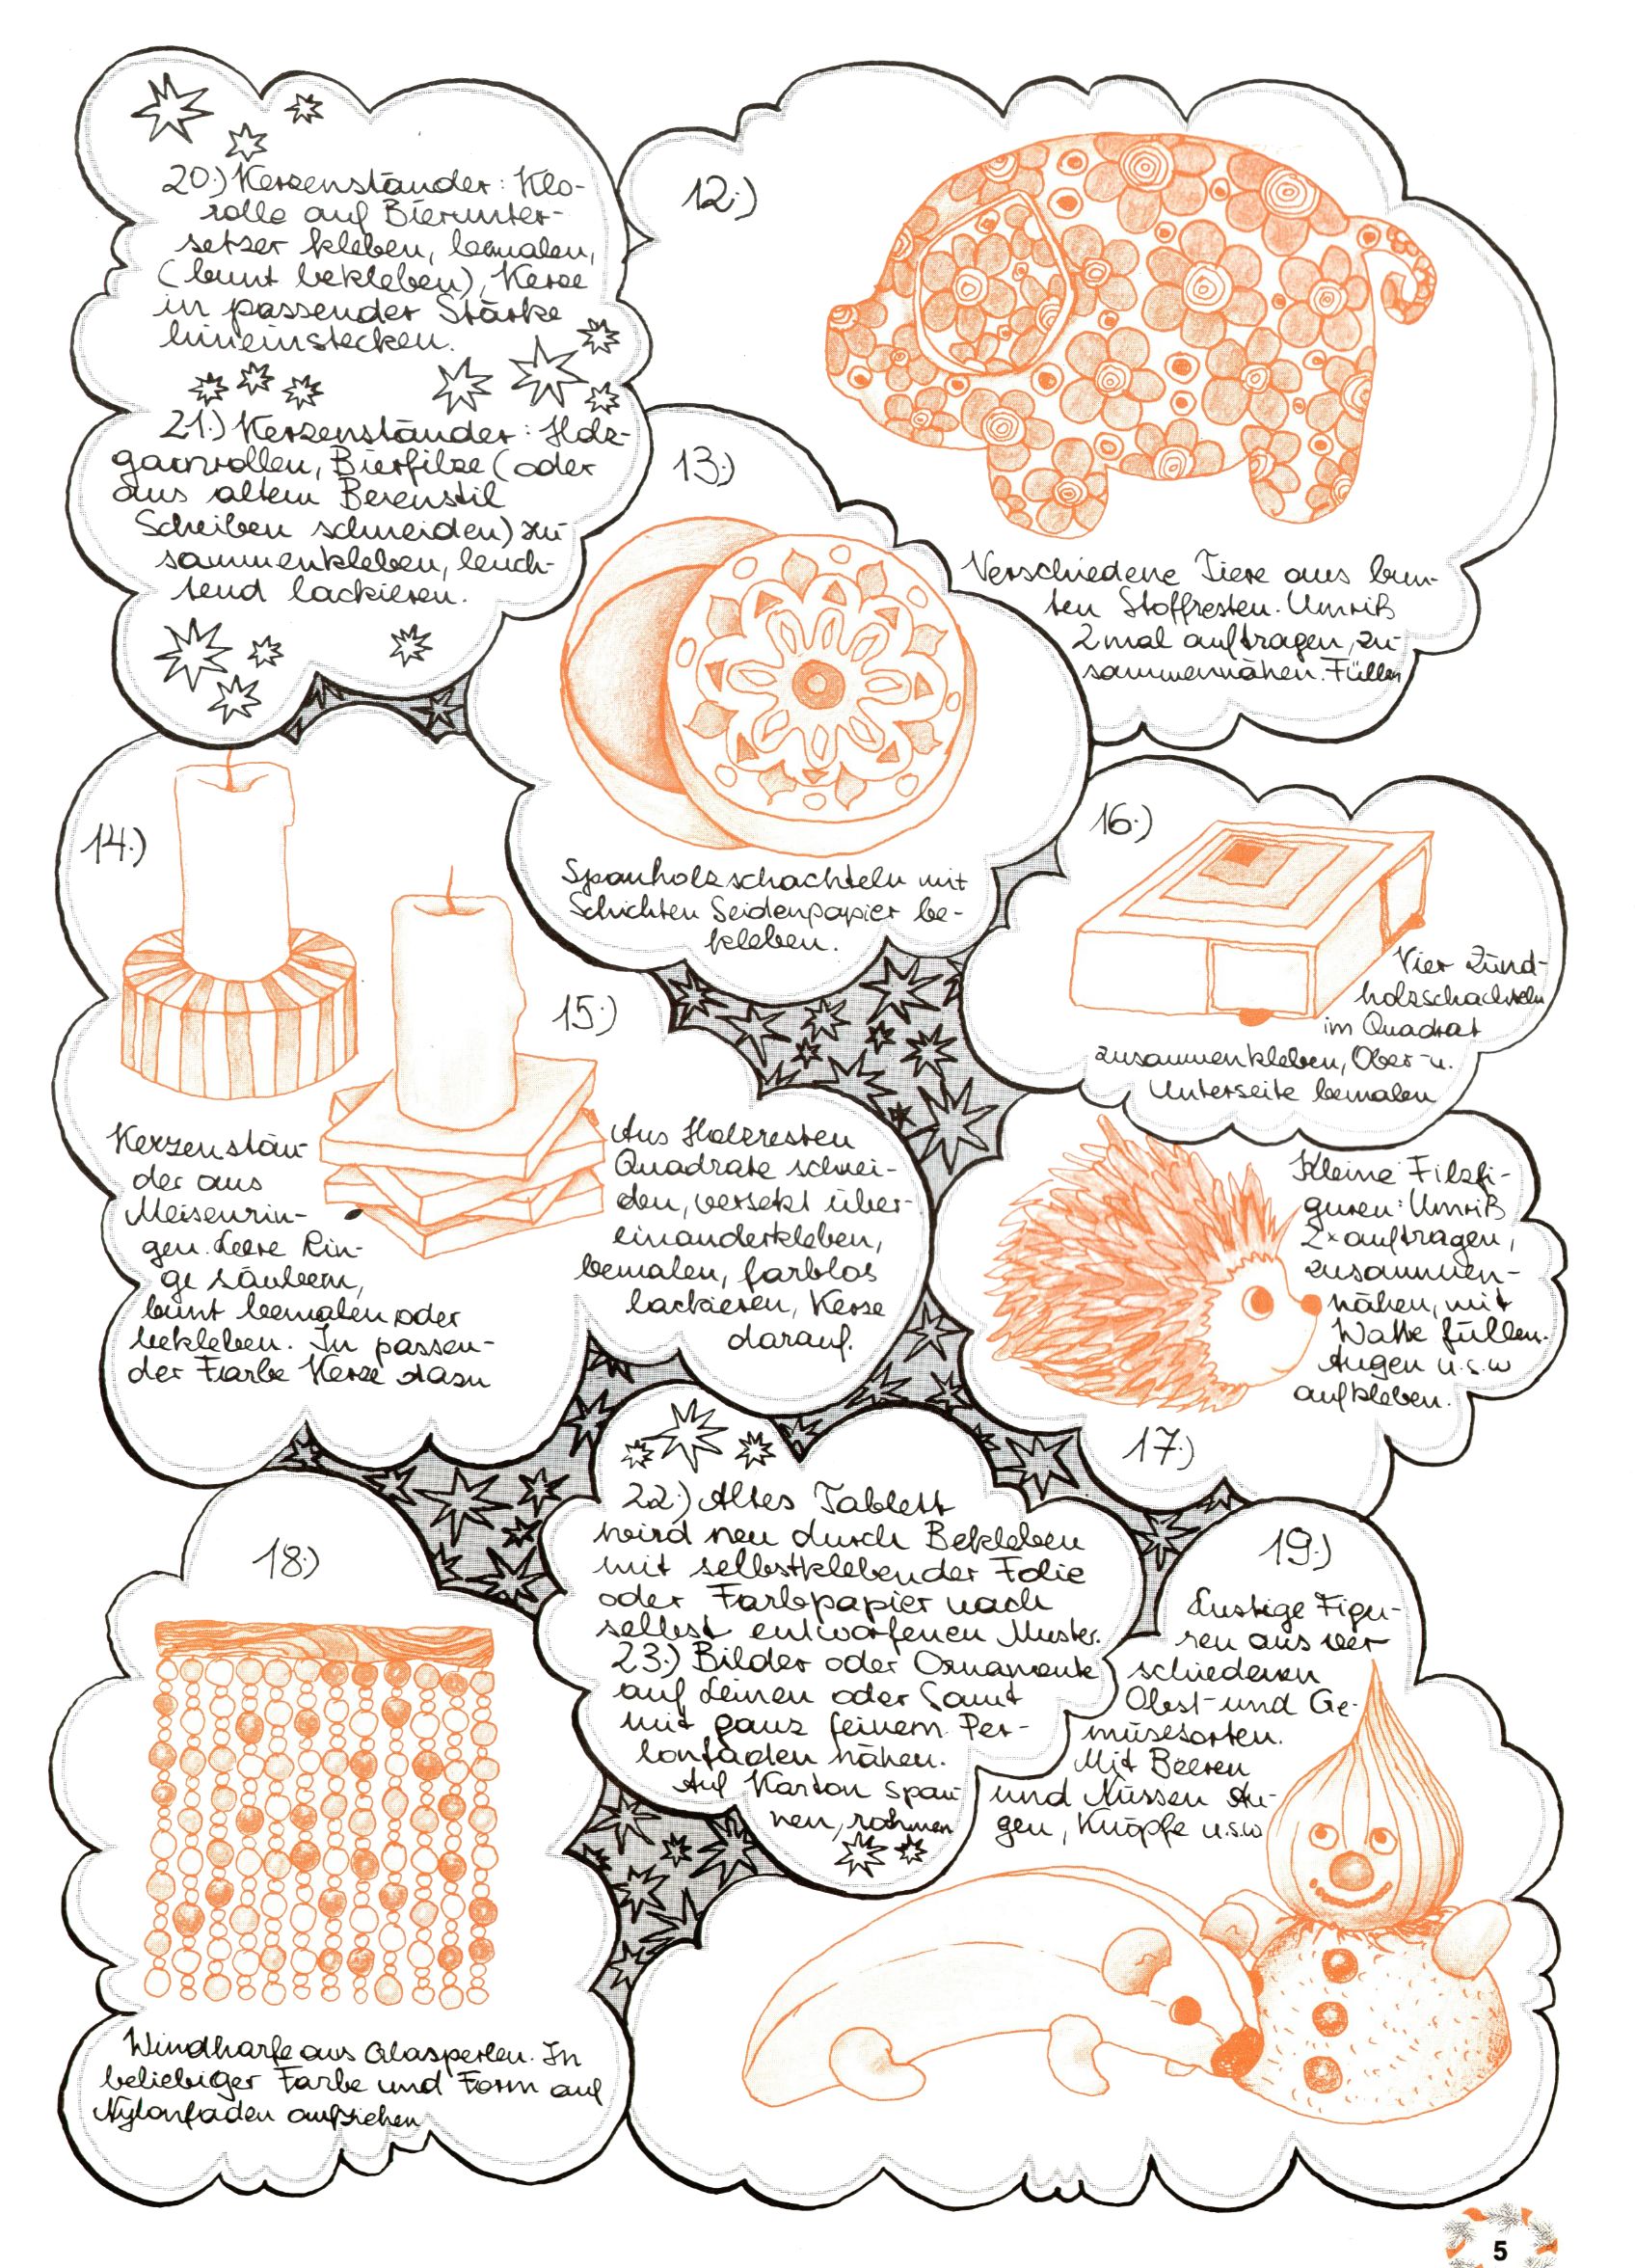 20.) Kerzenständer: Klo-
rolle auf Bierunter-
setzer kleben, bemalen,
(bunt bekleben), Kerze
in passender Stärke
hineinstecken.
21.) Kerzenständer: Holz-
garnrollen, Bierfilze (oder
aus altem Besenstil
Scheiben schneiden) zu
sammenkleben, leuch-
tend lackieren.
12.)
Verschiedene Tiere aus bun-
ten Stoffresten. Umriß
2 mal auftragen, zu-
sammennähen. Füllen
13.)
Spanholzschachteln mit
Schichten Seidenpapier be-
kleben.
14.)
Kerzenstän-
der aus
Meisenrin-
gen. Leere Rin-
ge säubern,
bunt bemalen oder
bekleben. In passen-
der Farbe Kerze dazu
15.)
Aus Holzresten
Quadrate schnei-
den, versetzt über-
einanderkleben,
bemalen, farblos
lackieren, Kerze
darauf.
16.)
Vier Zünd-
holzschachteln
im Quadrat
zusammenkleben, Ober- u.
Unterseite bemalen
Kleine Filzfi-
guren: Umriß
2x auftragen,
zusammen-
nähen, mit
Watte füllen.
Augen u.s.w
aufkleben.
17.)
18.)
Windharfe aus Glasperlen. In
beliebiger Farbe und Form auf
Nylonfaden aufziehen
22.) Altes Tablett
wird neu durch Bekleben
mit selbstklebender Folie
oder Farbpapier nach
selbst entworfenen Muster.
23.) Bilder oder Ornamente
auf Leinen oder Samt
mit ganz feinem Per-
lonfaden nähen.
Auf Karton span-
nen, rahmen
19.)
Lustige Figu-
ren aus ver
schiedenen
Obst- und Ge-
müsesorten.
Mit Beeren
und Nüssen Au-
gen, Knöpfe u.s.w
5